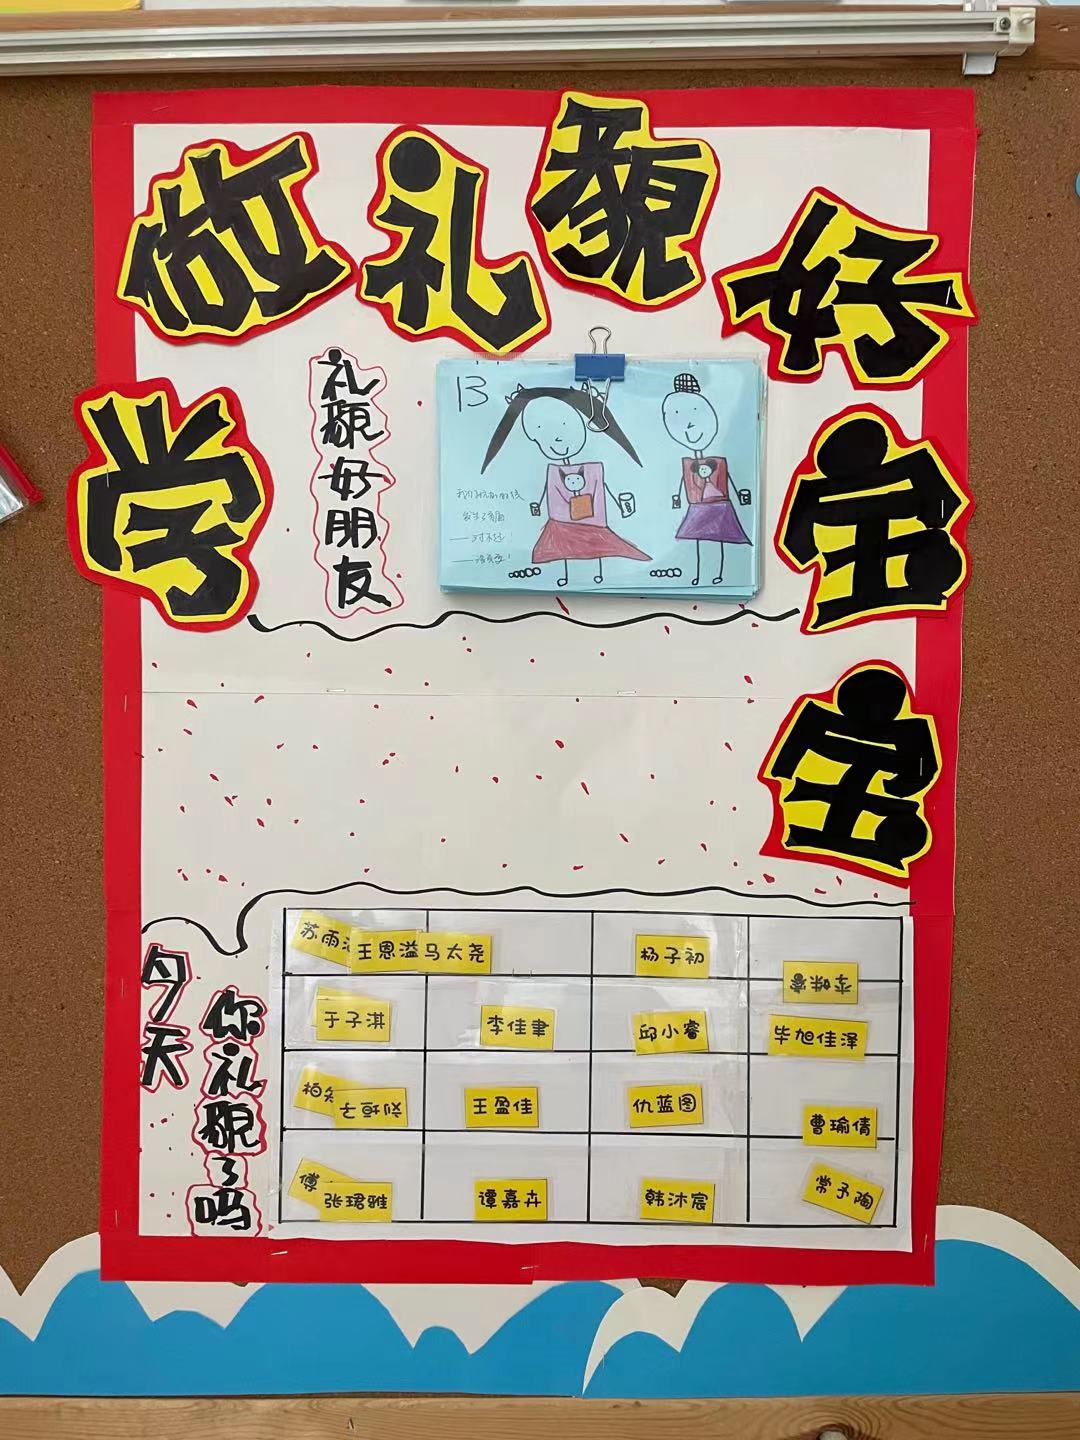 学做礼貌好宝宝
礼貌好朋友
13
——对不起！
——没关系！
今天
你礼貌了吗
苏雨
王恩溢
马太尧
杨子初
于子淇
李佳聿
邱小睿
毕旭佳泽
王盈佳
仇蓝图
曹瑜倩
傅
张珺雅
谭嘉卉
韩沐宸
常予陶